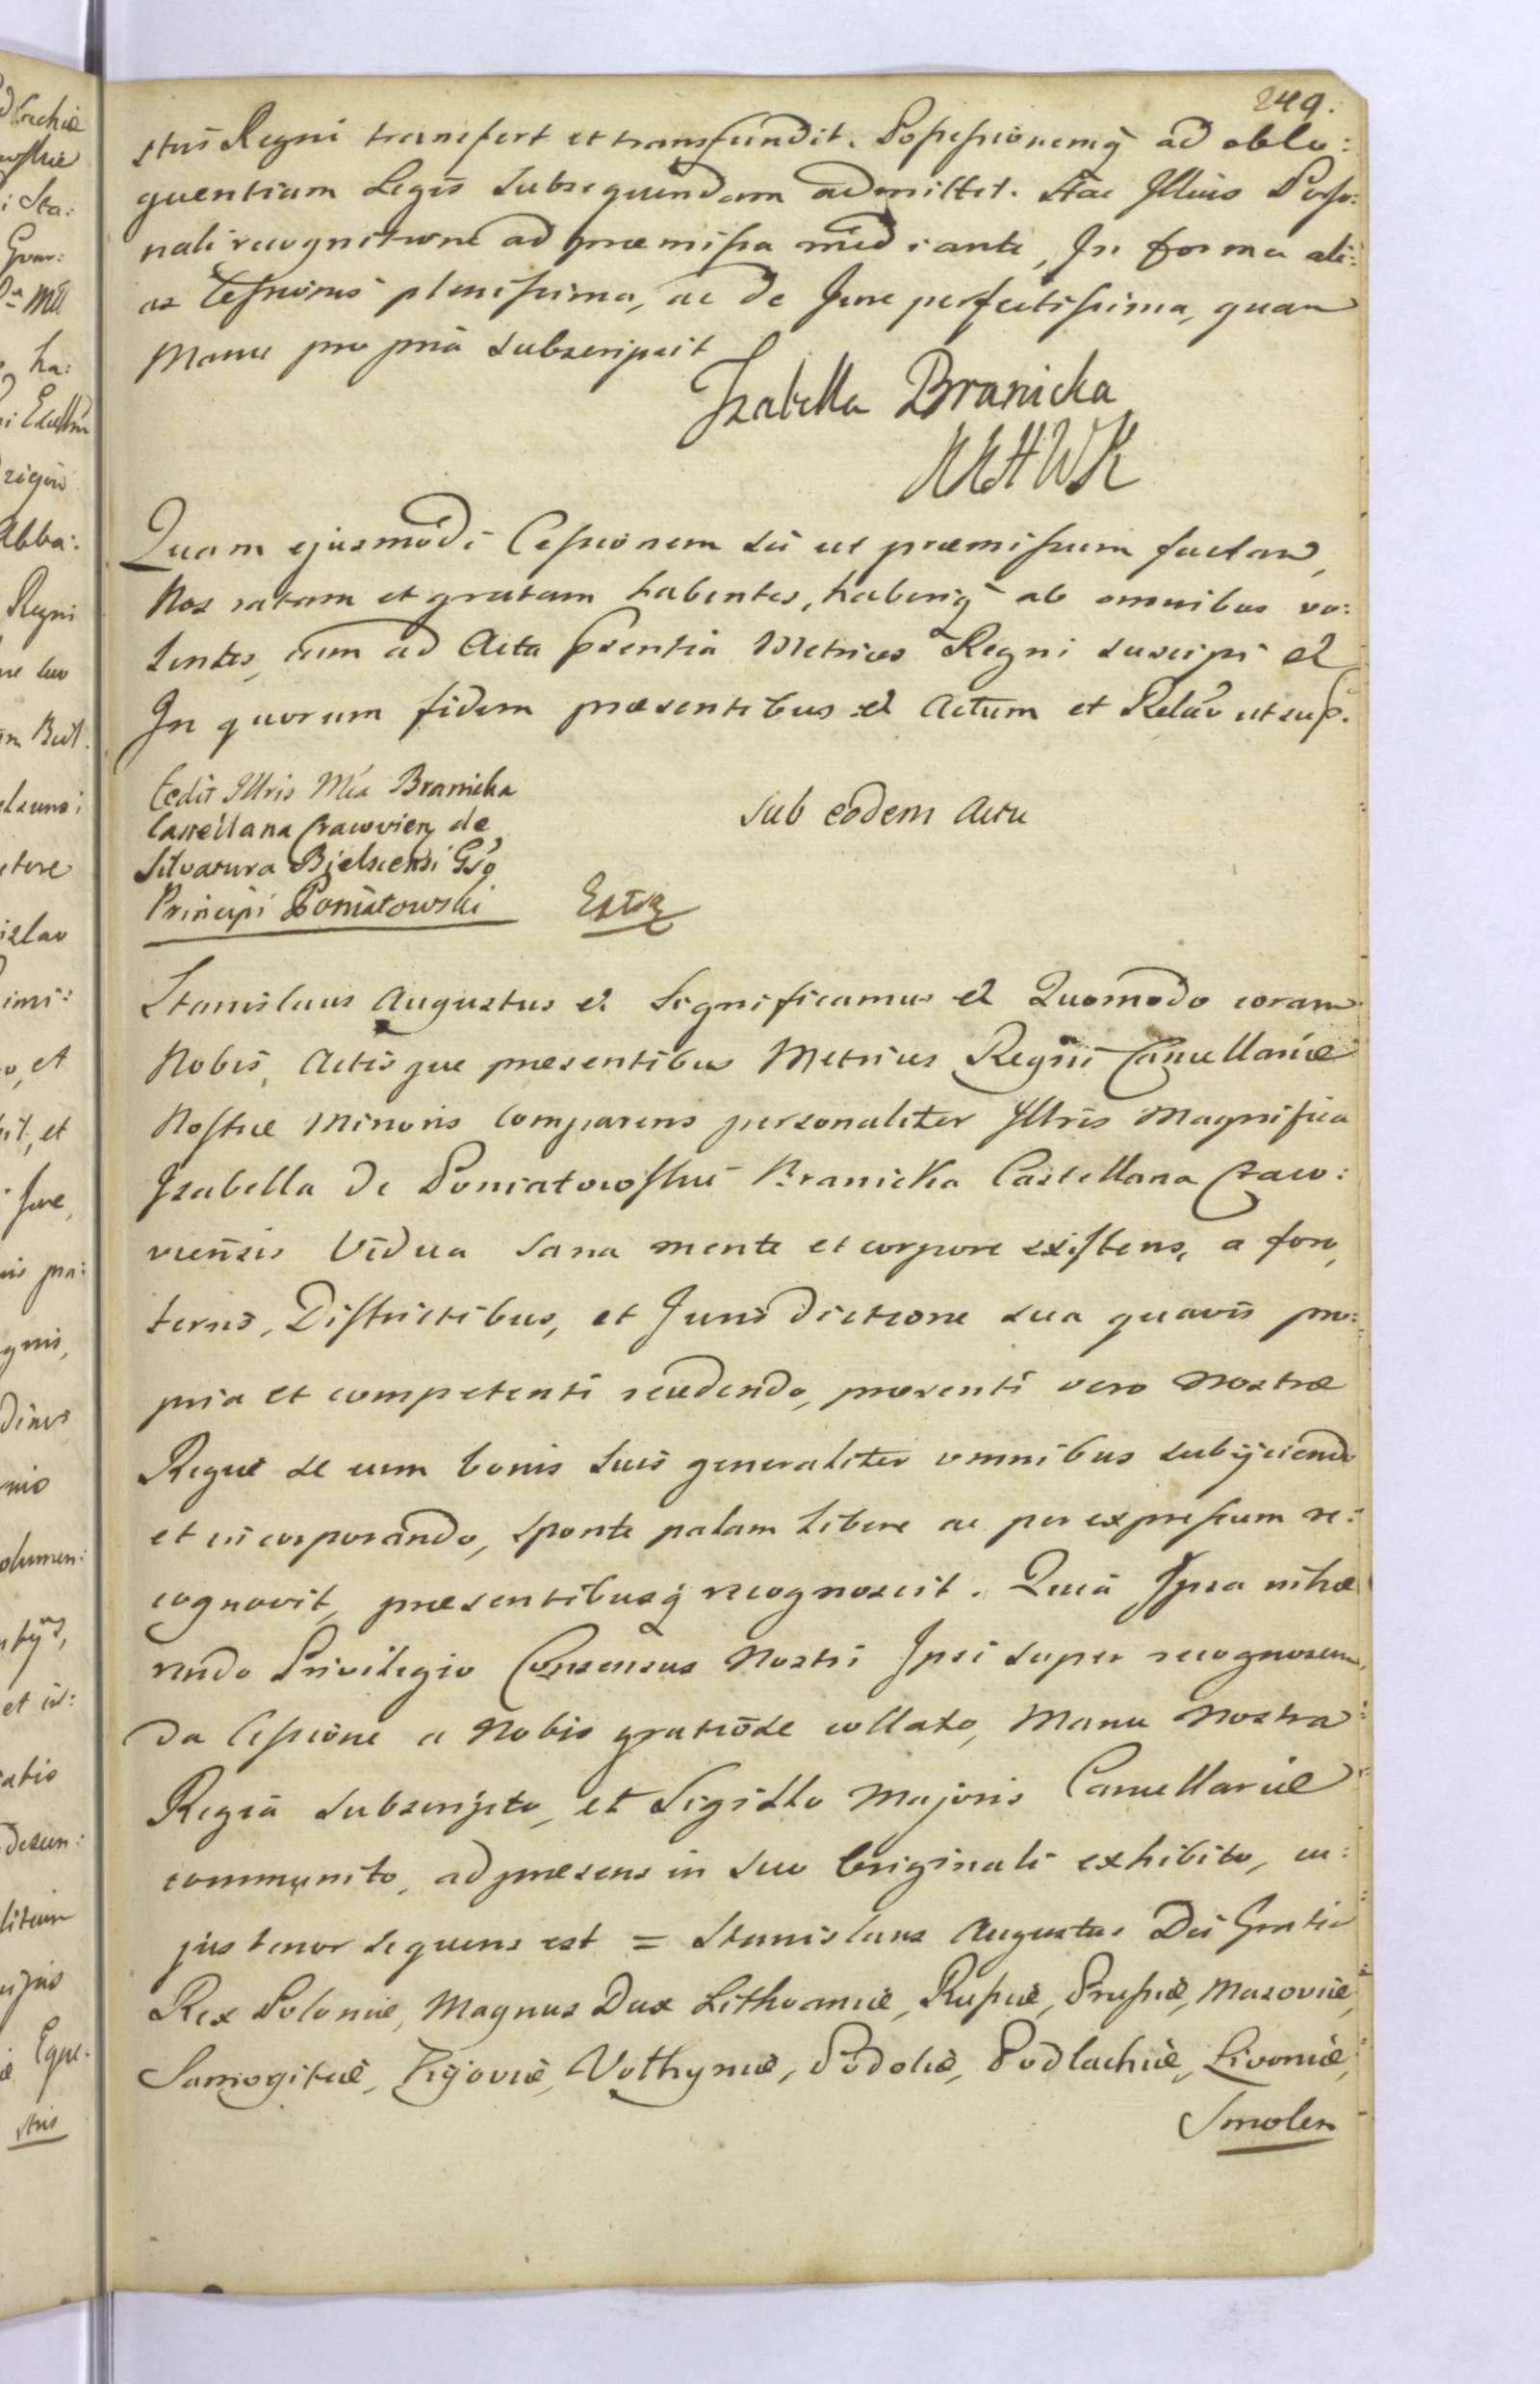 249.
stris Regni transfert et transfundit. Possessionemq̃ ad oble:
quentiam Legis subsequendam admittet. Hac Illius Perso:
nali recognitione ad præmissa mediante, In forma ali:
as Cessionis plenissima, ac de Jure perfectissima, quam
Manu pro pria subscripsit
Izabella Branicka
KKHWK
Quam ejusmodi Cessionem sic ut præmissum factam,
Nos ratam et gratam habentes, haberiq̃ ab omnibus vo:
lentes, eum ad Acta p̃sentia Metrices Regni suscipi &
In quorum fidem præsentibus & Actum et Relaõ ut sup.
Cedit Illris Mca Branicka
Castellana Cracovien de
Silvatura Bielscensi Gso
Principi Poniatowski
sub eodem Actu
Extr
Stanislaus Augustus & Significamus & Quomodo coram
Nobis, Actisque præsentibus Metrices Regni Cancellariæ
Nostræ Minoris Comparens personaliter Illris Magnifica
Izabella de Poniatowskie Branicka Castellana Craco:
viensis Vidua sana mente et corpore existens, a foro,
terris, Districtibus, et Jurisdictione sua quavis pro:
pria et competenti recedendo, præsenti vero Nostræ
Regiæ se cum bonis suis generaliter omnibus subijciendo
et incorporando, sponte palam libere ac per expressum re:
cognovit, præsentibusq̃ recognoscit. Quia Ipsa nihæ
rendo Privilegio Consensus Nostri Ipsi super recognoscen,
da Cessione a Nobis gratiose collato, Manu Nostra
Regia subscripto, et Sigillo Majoris Cancellariæ
communito, ad præsens in suo Originali exhibito, cu:
jus tenor sequens est = Stanislaus Augustus Dei Gratia
Rex Poloniæ, Magnus Dux Lithvaniæ, Russiæ, Prussiæ, Masoviæ,
Samogitiæ, Kijoviæ, Volhyniæ, Podoliæ, Podlachiæ, Livoniæ,
Smolen